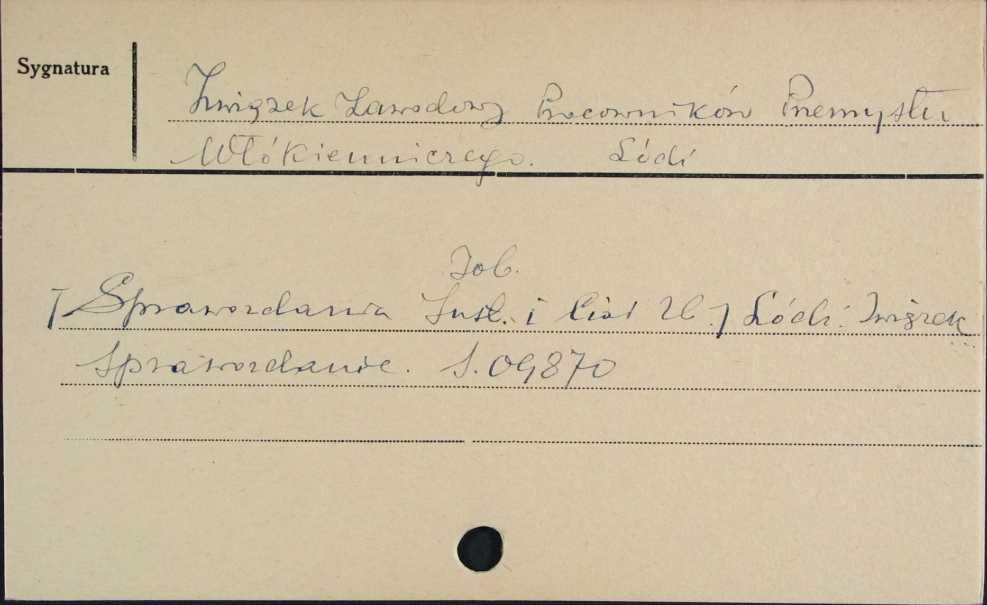 Sygnatura
Związek Zawodowy Pracowników Przemysłu
Włókienniczego. Łódź
Sprawozdania Inst. i Łódź. Związek
Sprawozdanie. S. 09870